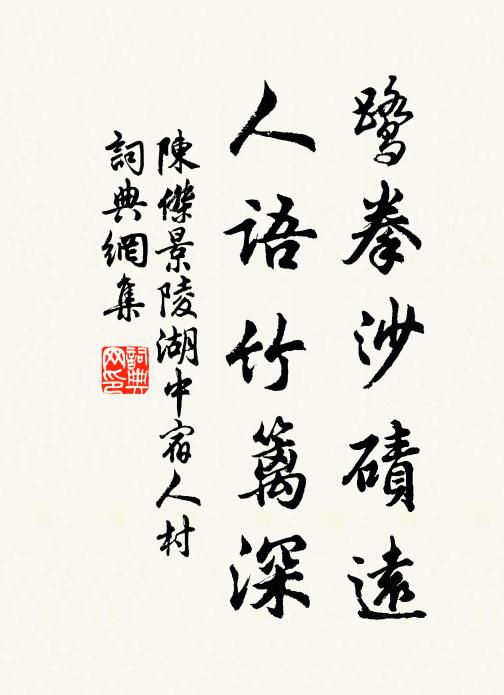 鹭拳沙磧遠
人語竹篱深
陳傑景陵湖中宿人村
詞典網集
詞典网印